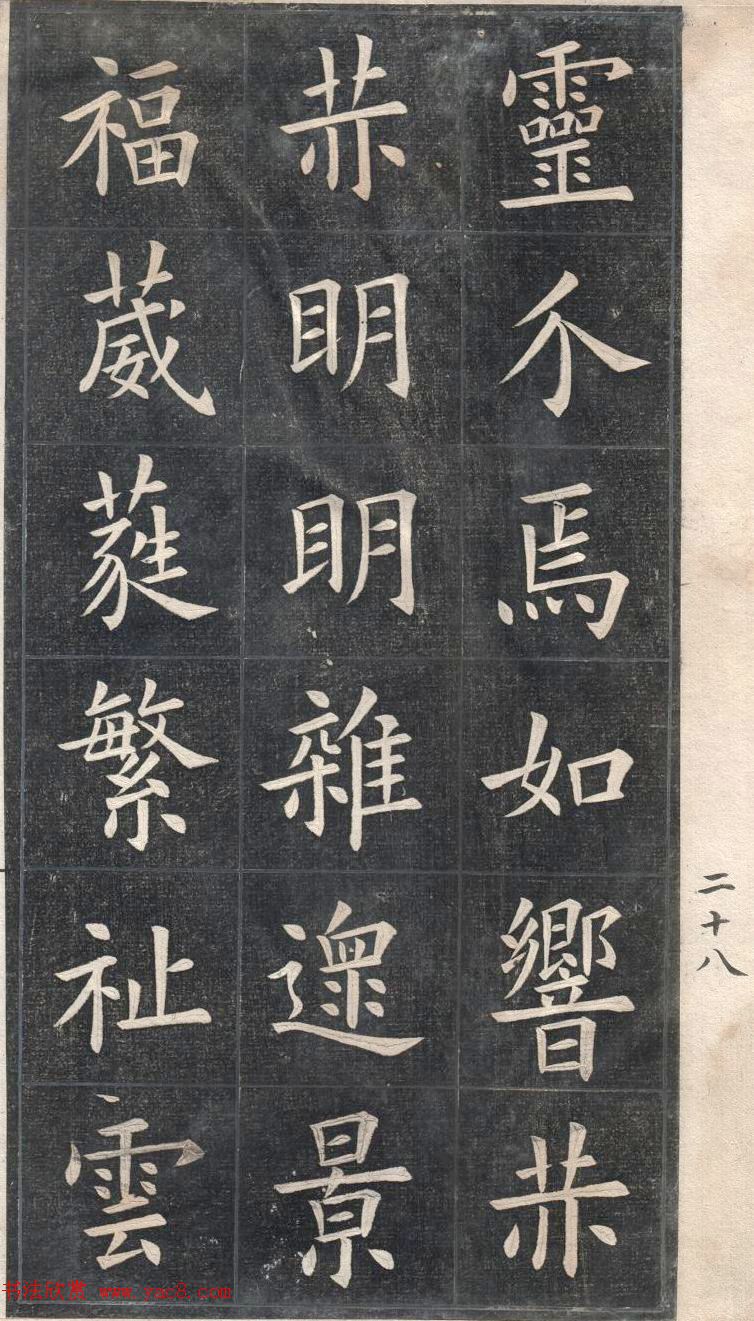 靈介焉如響恭
恭明明雜遝景
福葳蕤繁祉雲
二十八
书法欣赏 www.yac8.com